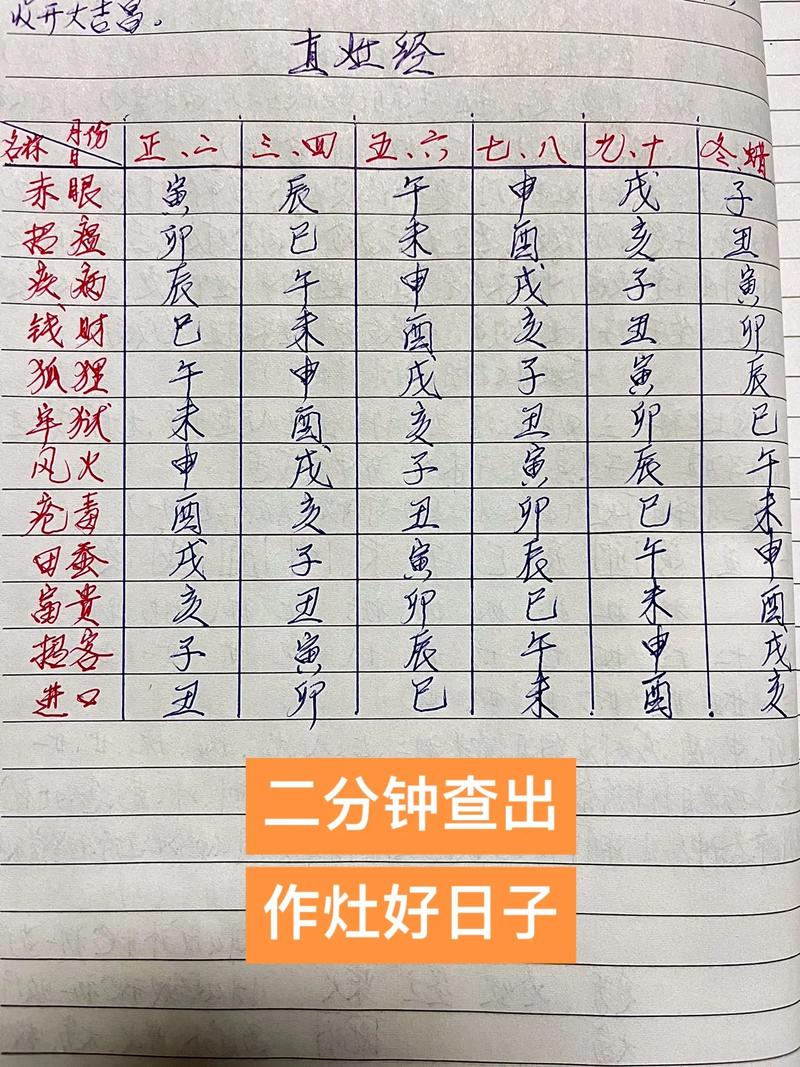 收开大吉昌。
真 经
名称 月份 日 正、二 三、四 五、六 七、八 九、十 冬、蜡
赤眼 寅 辰 午 申 戌 子
招瘟 卯 巳 未 酉 亥 丑
疾病 辰 午 申 戌 子 寅
钱财 巳 未 酉 亥 丑 卯
狐狸 午 申 戌 子 寅 辰
牢狱 未 酉 亥 丑 卯 巳
风火 申 戌 子 寅 辰 午
疮毒 酉 亥 丑 卯 巳 未
田蚕 戌 子 寅 辰 午 申
富贵 亥 丑 卯 巳 未 酉
招客 子 寅 辰 午 申 戌
进口 丑 卯 巳 未 酉 亥
二分钟查出
作灶好日子